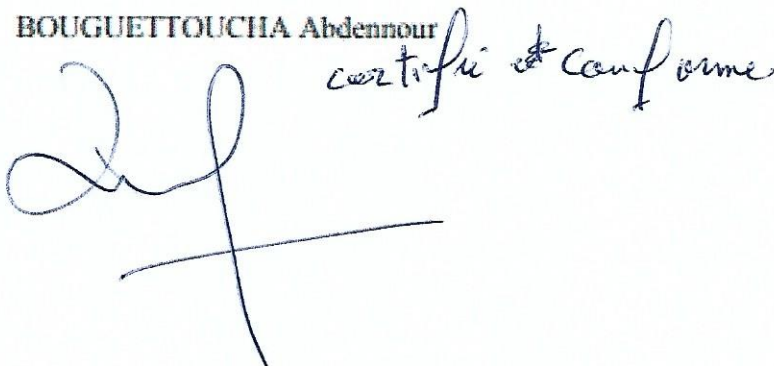 BOUGUETTOUCHA Abdennour
certifié et conforme